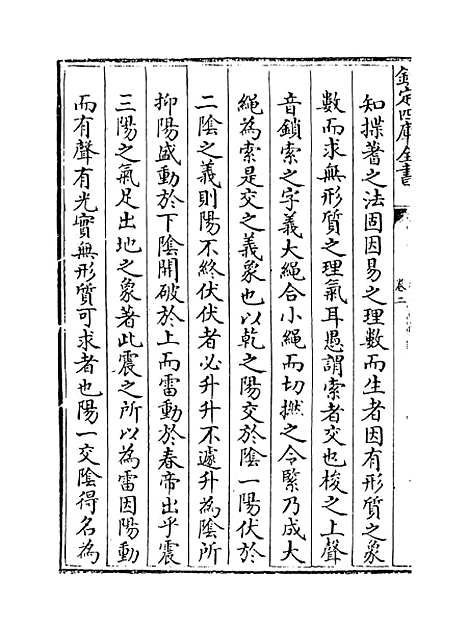 欽定四庫全書
卷二
知揲蓍之法固因易之理數而生者因有形質之象
數而求無形質之理氣耳愚謂索者交也梭之上聲
音鎖索之字義大繩合小繩而切撚之令緊乃成大
繩為索是交之義象也以乾之陽交於陰一陽伏於
二陰之義則陽不終伏伏者必升升不遽升為陰所
抑陽盛動於下陰開破於上而雷動於春帝出乎震
三陽之氣足出地之象著此震之所以為雷因陽動
而有聲有光實無形質可求者也陽一交陰得名為